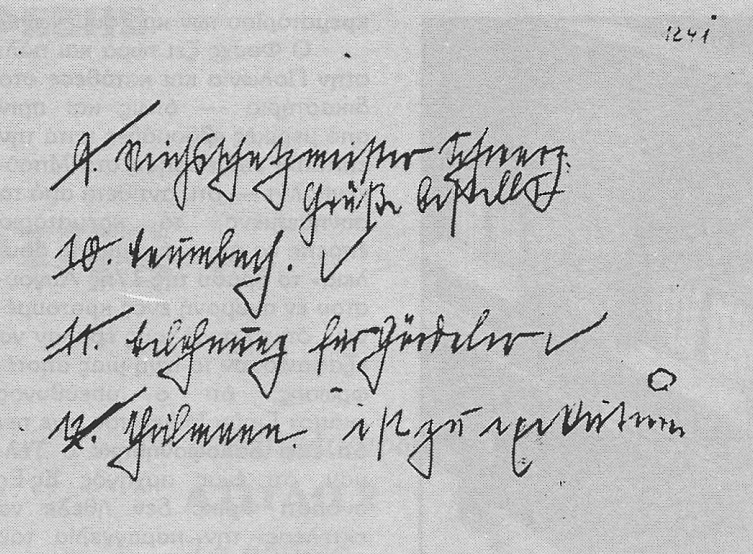 9. Reichsschatzmeister Schwarz.
Grüße bestellt
10.
11. Belohnung für Gördeler
12. Thälmann. ist zu exekutieren